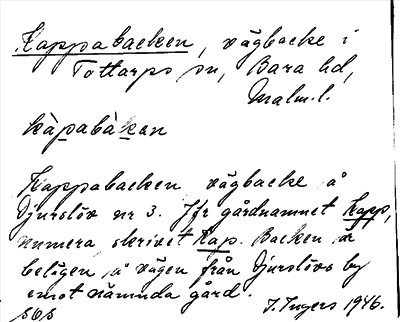 Kappabacken, vägbacke i
Tottarps sn, Bara hd,
Malm. l.
kàpabàkan
Kappabacken vägbacke å
Djurslöv nr 3. Jfr gårdnamnet Kapp,
numera skrivet Kap. Backen är
belägen å vägen från Djurslövs by
emot nämnda gård.
J. Ingers 1946.